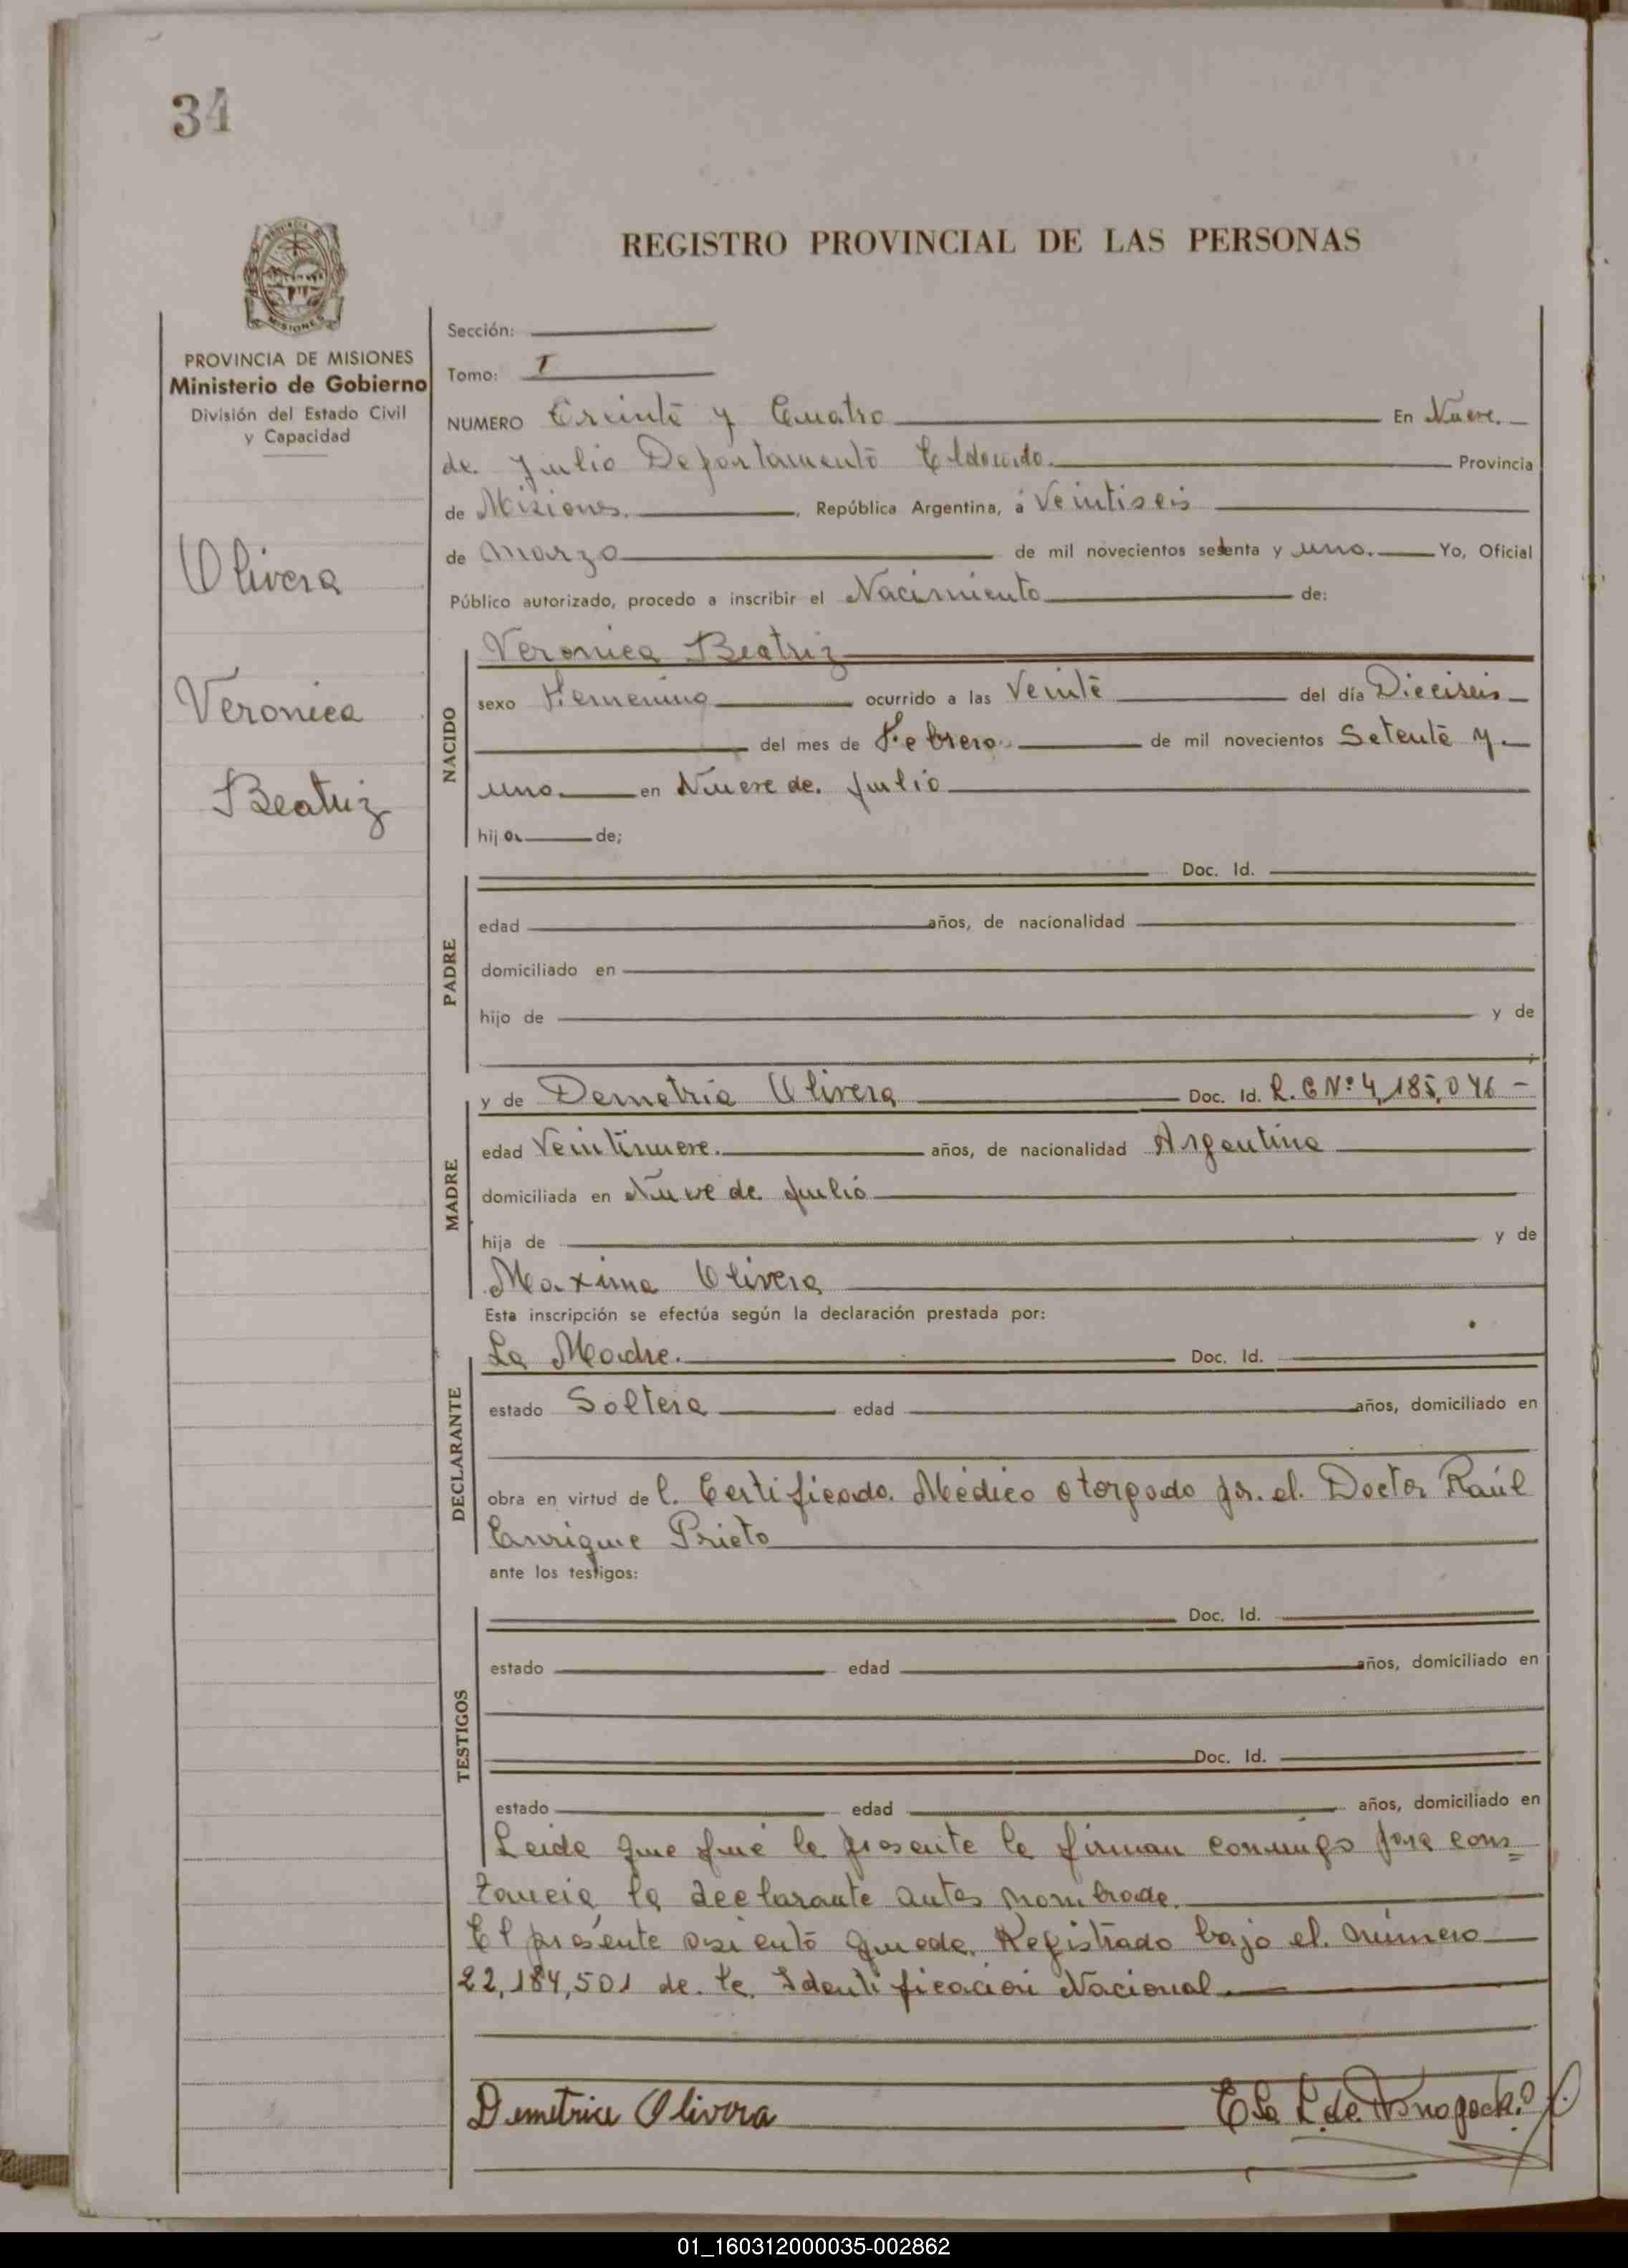 34
REGISTRO PROVINCIAL DE LAS PERSONAS
PROVINCIA DE MISIONES
Ministerio de Gobierno
División del Estado Civil
y Capacidad
Olivera
Veronica
Beatriz
Sección:
Tomo: I
NUMERO Treinta y Cuatro En Nueve
de Julio Departamento Eldorado. Provincia
de Misiones, República Argentina, á Veintiseis
de Marzo de mil novecientos setenta y uno. Yo, Oficial
Público autorizado, procedo a inscribir el Nacimiento de:
NACIDO
Veronica Beatriz
sexo Femenino ocurrido a las Veinte del día Dieciseis
del mes de Febrero de mil novecientos Setenta y
uno en Nueve de Julio
hija de;
PADRE
Doc. Id.
edad años, de nacionalidad
domiciliado en
hijo de y de
MADRE
y de Demetria Olivera Doc. Id. L. C Nº 4,185,046
edad Veintinueve. años, de nacionalidad Argentina
domiciliada en Nueve de Julio
hija de y de
Maxima Olivera
Esta inscripción se efectúa según la declaración prestada por:
DECLARANTE
La Madre. Doc. Id.
estado Soltera edad años, domiciliado en
obra en virtud de l. Certificado. Médico otorgado por. el. Doctor Raúl
Enrique Prieto
ante los testigos:
TESTIGOS
Doc. Id.
estado edad años, domiciliado en
Doc. Id.
estado edad años, domiciliado en
Leida que fué la presente la firman conmigo para cons=
tancia la declarante antes nombrada.
El presente asiento queda. Registrado bajo el. número
22,184,501 de. la. Identificación Nacional.
Demetria Olivera
01_160312000035-002862